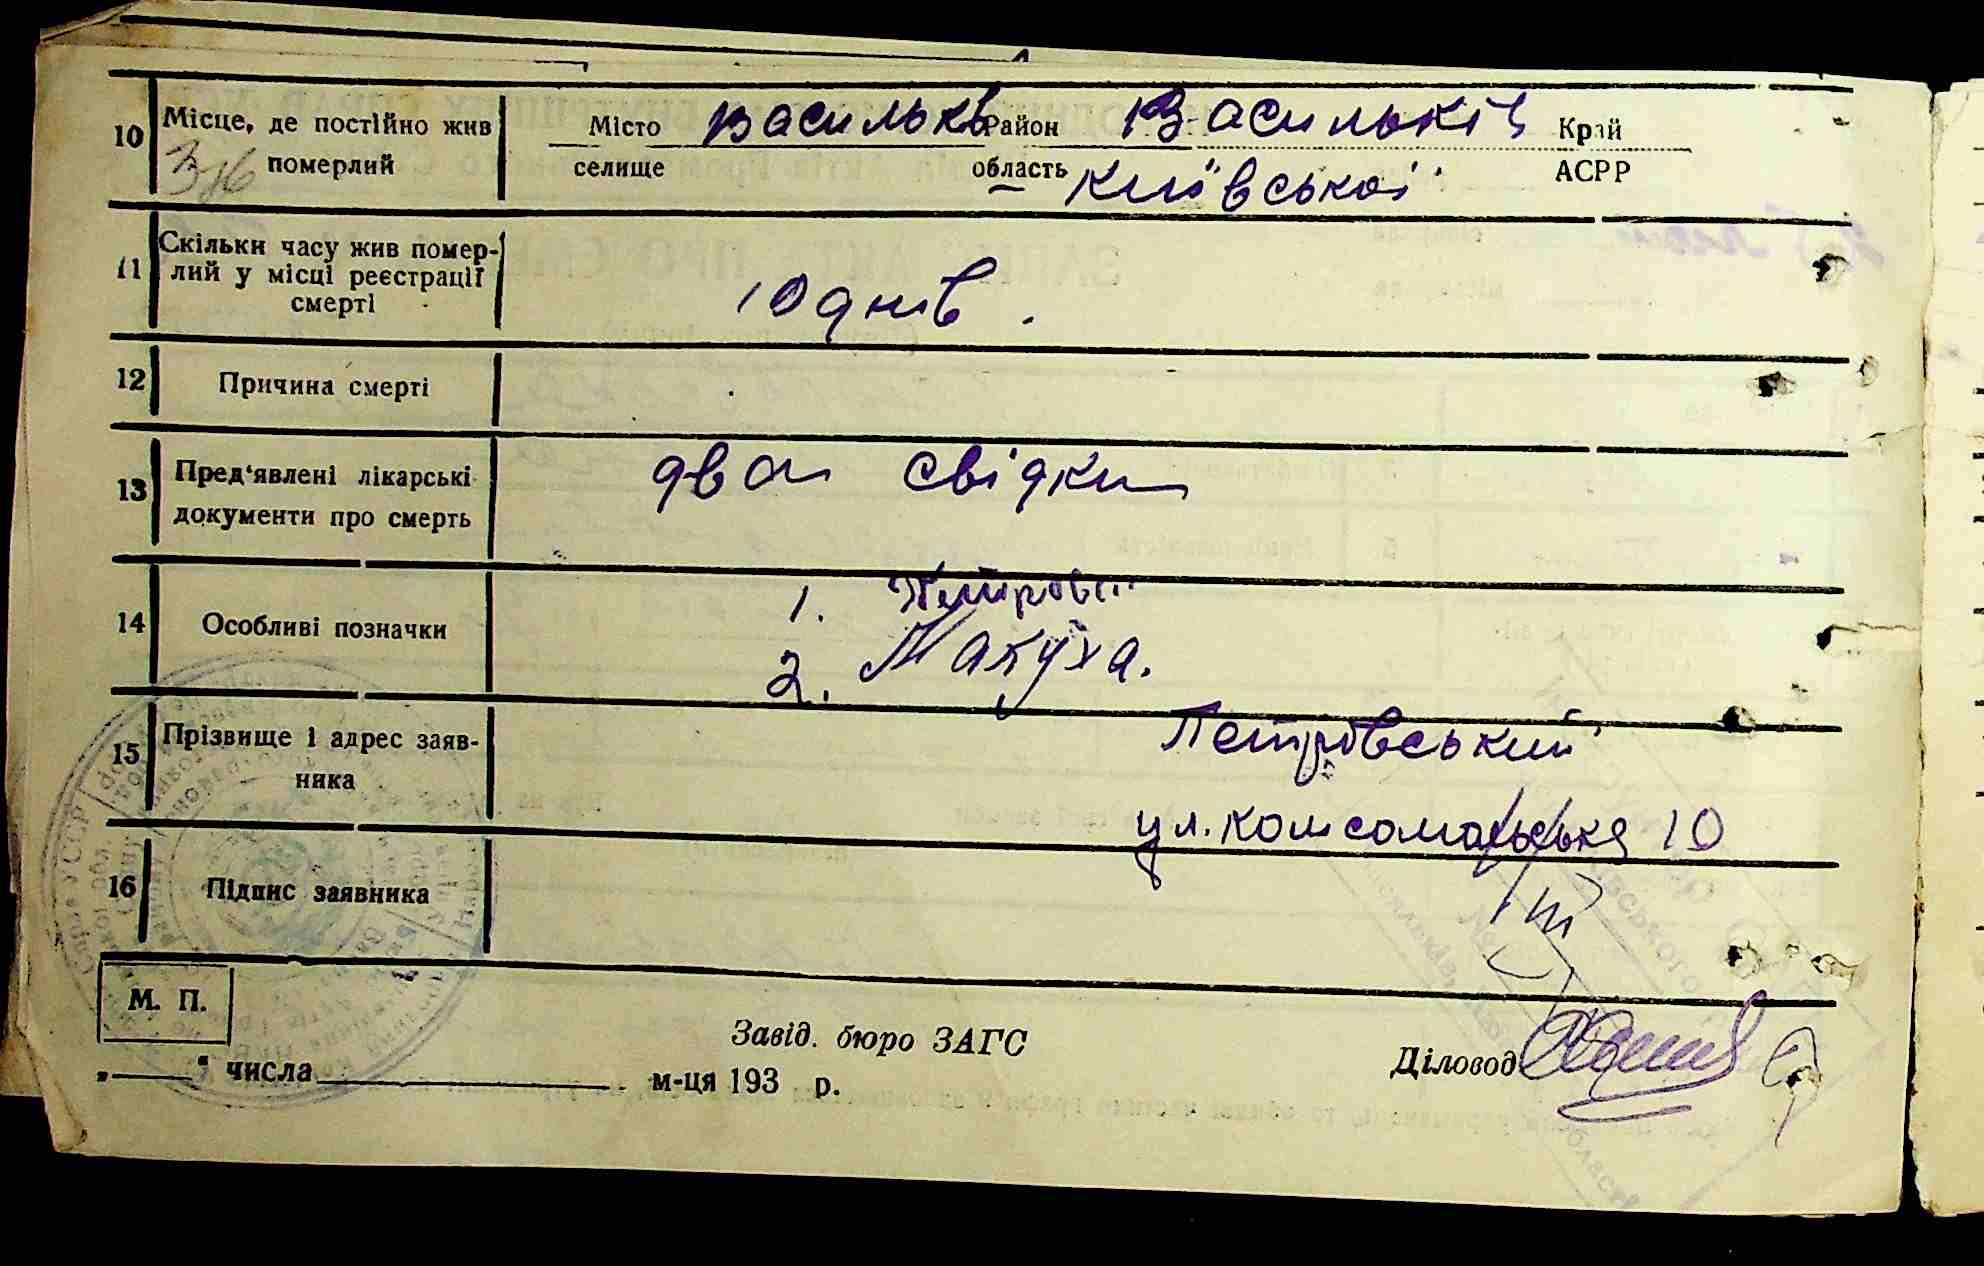 10 Місце, де постійно жив померлий
Місто Васильків Район Васильків Край
селище область Київської АСРР
11 Скільки часу жив помер-
лий у місці реєстрації
смерті
10 днів.
12 Причина смерті
13 Пред'явлені лікарські
документи про смерть
два свідки
14 Особливі позначки
1.
2. Макуха.
15 Прізвище і адрес заяв-
ника
Петровський
ул. комсомольська 10
16 Підпис заявника
М. П.
Завід. бюро ЗАГС
Діловод
„ “ числа м-ця 193 р.